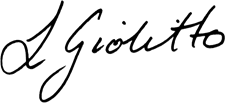 L Gioletto